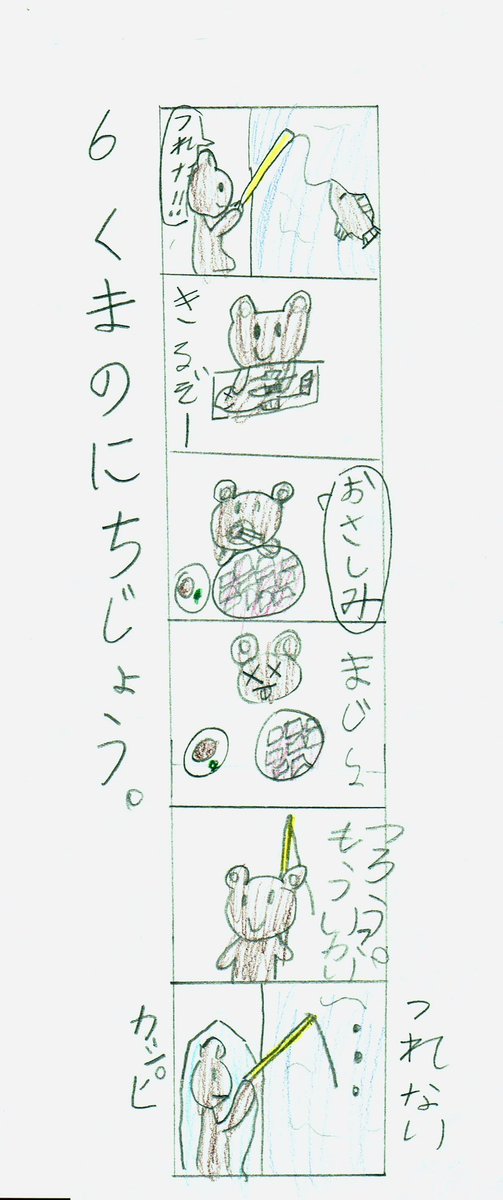 6 くまのにちじょう。
つれた!!
きるぞー
おさしみ
もういっかい
つろう。
つれない